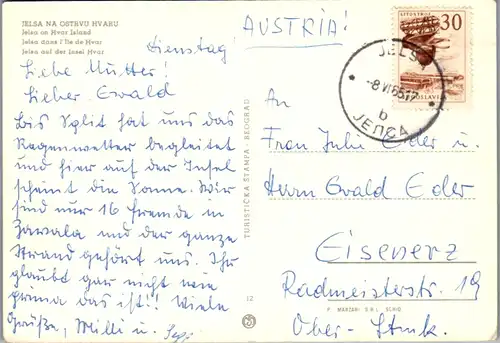 JELSA NA OSTRVU HVARU
Jelsa on Hvar Island
Jelsa dans l'île de Hvar
Jelsa auf der Insel Hvar
AUSTRIA!
Dienstag!
Liebe Mutter!
Lieber Ewald
Bis Split hat uns das
Regenwetter begleitet
und hier auf der Insel
scheint die Sonne. Wir
sind nur 16 Fremde in
Zavala und der ganze
Strand gehört uns. Ihr
glaubt gar nicht wie
prima das ist!! Viele
Grüße, Milli u. Sepp
TURISTIČKA ŠTAMPA - BEOGRAD
12
30
JUGOSLAVIJA
JELSA
-8 VI 65
b
ЈЕЛСА
An
Frau Julie Eder u.
Herrn Ewald Eder
Eisenerz
Radmeisterstr. 19
Ober-Stmk.